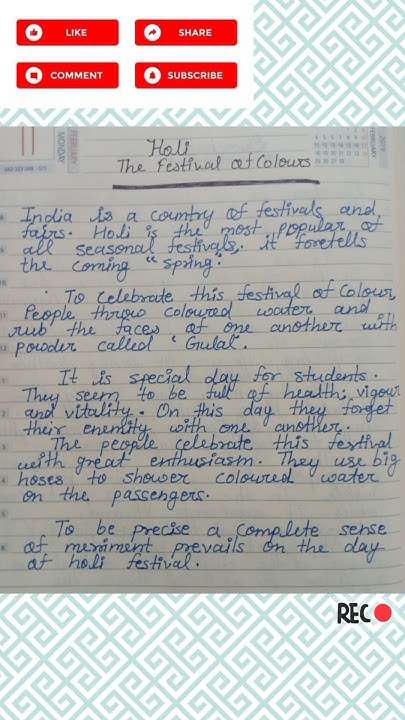 LIKE
SHARE
COMMENT
SUBSCRIBE
FEBRUARY
MONDAY
FEBRUARY
2019
Holi
The Festival of Colours
India is a country of festivals and
fairs. Holi is the most popular of
all seasonal festivals, it foretells
the coming "Spring".
To celebrate this festival of Colour,
People throw coloured water and
rub the faces of one another with
powder called "Gulal".
It is special day for students.
They seem to be full of health, vigour
and vitality. On this day they forget
their enemity with one another.
The people celebrate this festival
with great enthusiasm. They use big
hoses to shower coloured water
on the passengers.
To be precise a complete sense
of merriment prevails on the day
of holi festival.
REC